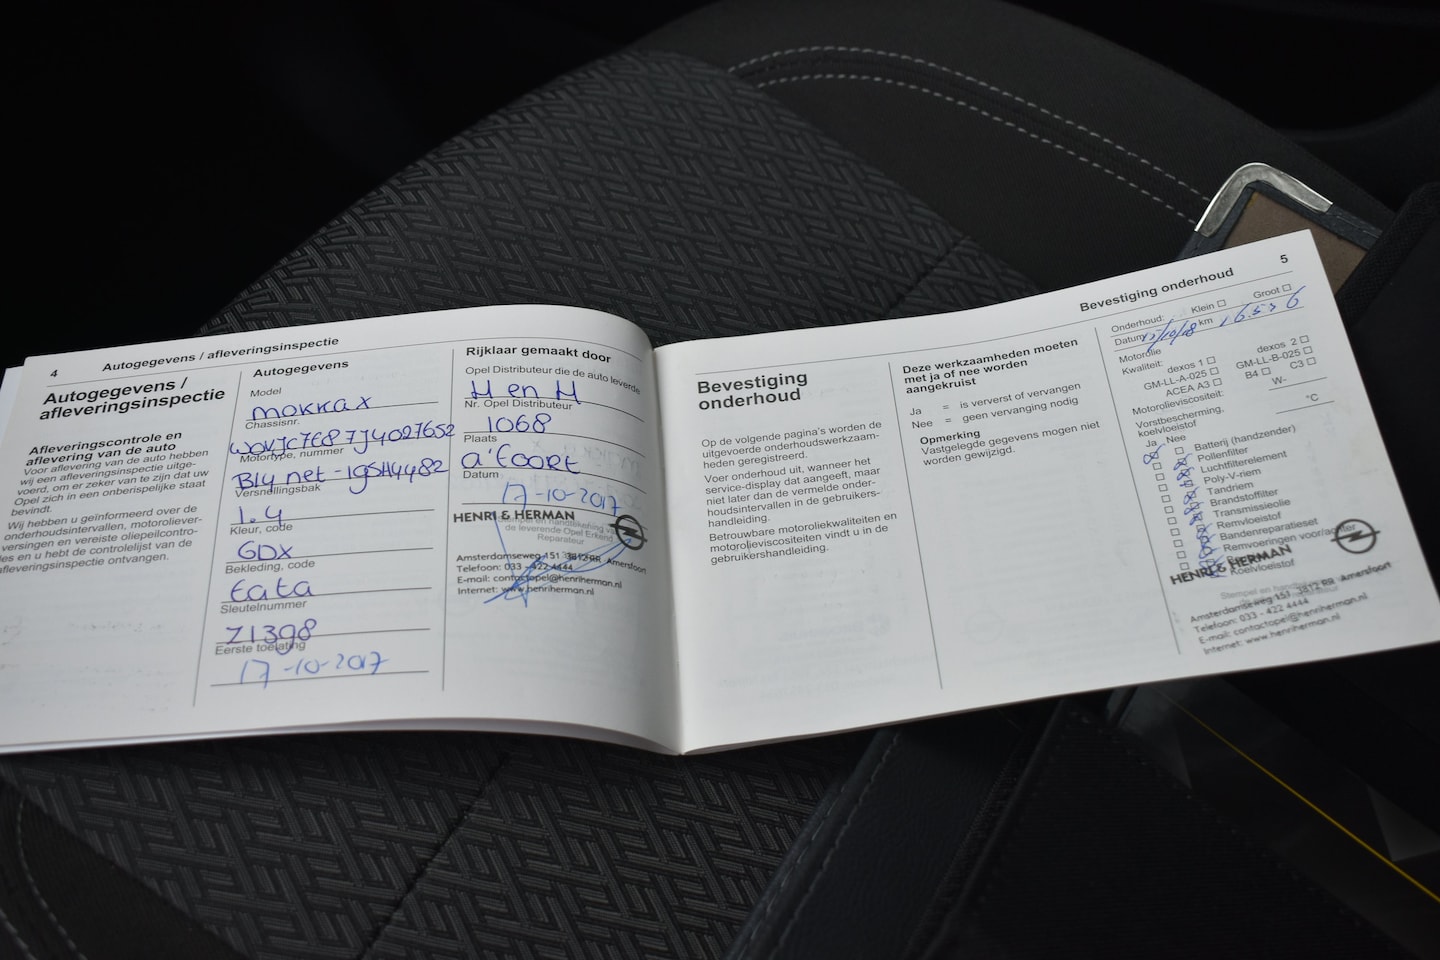 4 Autogegevens / afleveringsinspectie
Autogegevens /
afleveringsinspectie
Afleveringscontrole en
aflevering van de auto
Voor aflevering van de auto hebben
wij een afleveringsinspectie uitge-
voerd, om er zeker van te zijn dat uw
Opel zich in een onberispelijke staat
bevindt.
Wij hebben u geïnformeerd over de
onderhoudsintervallen, motoroliever-
versingen en vereiste oliepeilcontro-
les en u hebt de controlelijst van de
afleveringsinspectie ontvangen.
Autogegevens
Model
MOKKA X
Chassisnr.
W0VJC7E87J4027652
Motortype, nummer
B14 net - 19SH4482
Versnellingsbak
1.4
Kleur, code
GDX
Bekleding, code
tata
Sleutelnummer
Z1398
Eerste toelating
17-10-2017
Rijklaar gemaakt door
Opel Distributeur die de auto leverde
H en H
Nr. Opel Distributeur
1068
Plaats
a'foort
Datum
17-10-2017
HENRI & HERMAN
Stempel en handtekening van
de leverende Opel Erkend
Reparateur
Amsterdamseweg 151 3812 RR Amersfoort
Telefoon: 033 - 422 4444
E-mail: contactopel@henriherman.nl
Internet: www.henriherman.nl
Bevestiging onderhoud 5
Bevestiging
onderhoud
Op de volgende pagina's worden de
uitgevoerde onderhoudswerkzaam-
heden geregistreerd.
Voer onderhoud uit, wanneer het
service-display dat aangeeft, maar
niet later dan de vermelde onder-
houdsintervallen in de gebruikers-
handleiding.
Betrouwbare motoroliekwaliteiten en
motorolieviscositeiten vindt u in de
gebruikershandleiding.
Deze werkzaamheden moeten
met ja of nee worden
aangekruist
Ja = is ververst of vervangen
Nee = geen vervanging nodig
Opmerking
Vastgelegde gegevens mogen niet
worden gewijzigd.
Onderhoud: Klein Groot
Datum /10/18 km
Motorolie
Kwaliteit: dexos 1 dexos 2
GM-LL-A-025 GM-LL-B-025
ACEA A3 B4 C3
Motorolieviscositeit: W-
Vorstbescherming,
koelvloeistof °C
Ja Nee
Batterij (handzender)
Pollenfilter
Luchtfilterelement
Poly-V-riem
Tandriem
Brandstoffilter
Transmissieolie
Remvloeistof
Bandenreparatieset
Remvoeringen voor/achter
Koelvloeistof
HENRI & HERMAN
Amsterdamseweg 151 3812 RR Amersfoort
Telefoon: 033 - 422 4444
E-mail: contactopel@henriherman.nl
Internet: www.henriherman.nl